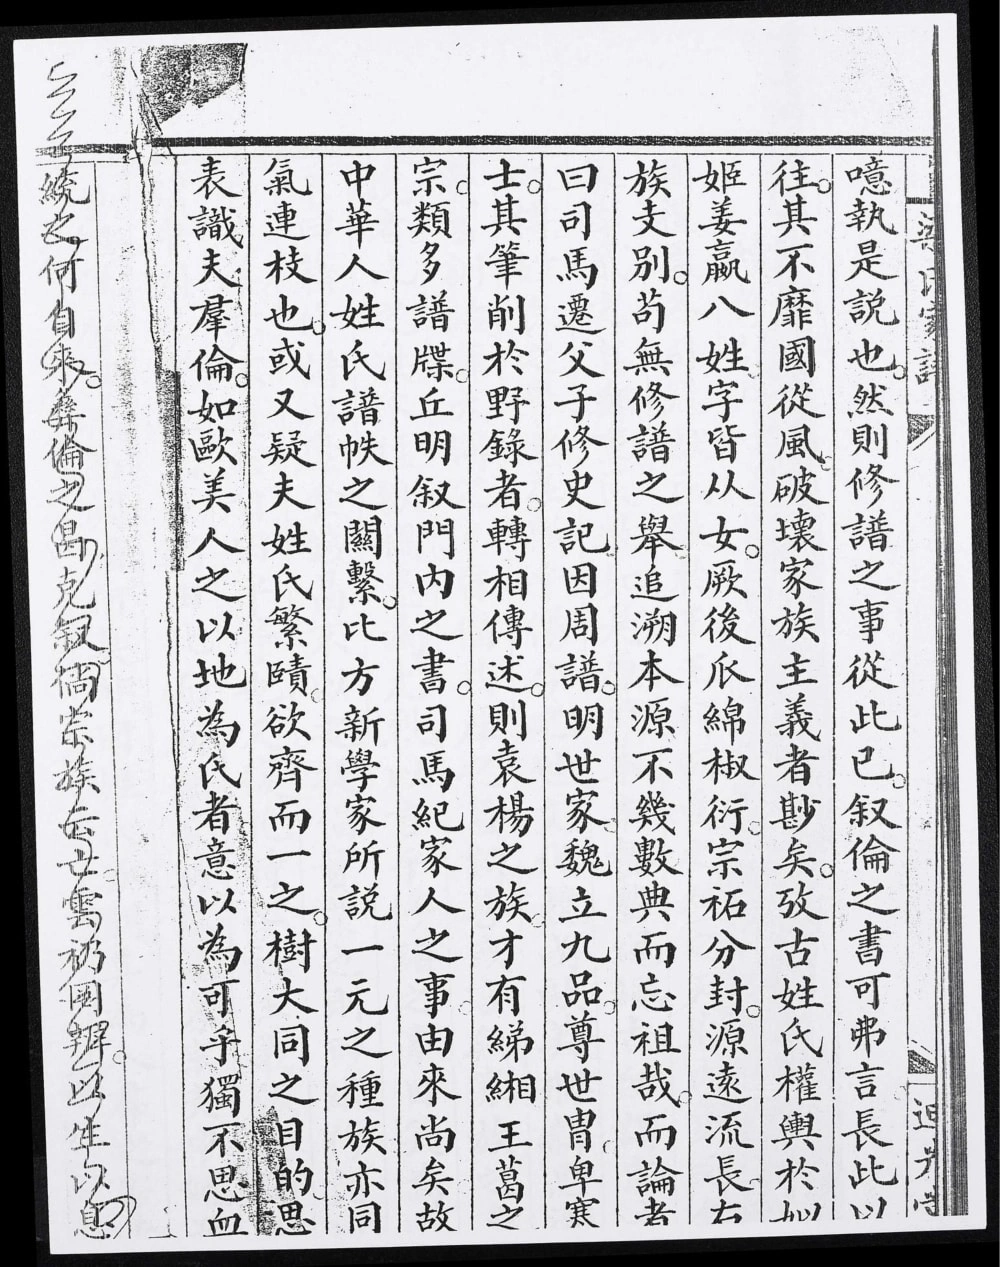 梁氏家譜
噫執是説也。然則修譜之事從此已。叙倫之書可弗言長此以
往。其不靡國從風。破壞家族主義者尠矣。攷古姓氏權輿於如
姬姜嬴八姓字皆从女。厥後瓜綿椒衍。宗祏分封。源遠流長。右
族支别。苟無修譜之舉追溯本源不幾數典而忘祖哉。而論者
曰司馬遷父子修史記因周譜。明世家。魏立九品。尊世胄。卑寒
士。其筆削於野錄者。轉相傳述。則袁楊之族。才有綈緗王葛之
宗。類多譜牒。丘明叙門内之書。司馬紀家人之事。由來尚矣故
中華人姓氏譜帙之關繫。比方新學家所説一元之種族亦同
氣連枝也。或又疑夫姓氏繁賾。欲齊而一之。樹大同之目的。思
表識夫羣倫。如歐美人之以地為氏者意以為可乎獨不思血
統之何自來。彝倫之曷克叙。倘宗族云亡。雲礽罔辨。以生以息